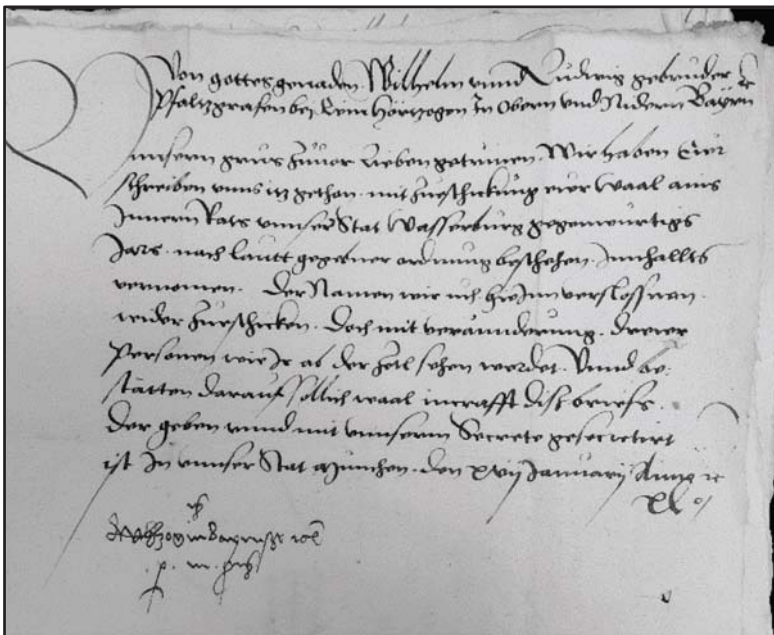 Von gottes genaden Wilhelm vnnd Ludwig gebruder ꝛc
Pfaltzgrafen bej Rein Hörtzogen In Obern vnd Nidern Bayrn
vnnsern grus zuuor Lieben getruien. Wir haben Eur
schreiben vnns itz gethon. mit zueschickung eur Waal aines
Innern Rats vnnser Stat Wasserburg gegenwurtigs
Jars. nach lautt gegebner ordnung beschehen. Innhallts
vernomen. Der Namen wir uch hieInn verslossnen
wider zueschicken. Doch mit veränderung. dreier
Personen wie Ir ab der Zetl sehen werdet. Vnnd be,
stätten darauf sollich waal in crafft diss briefs.
Der geben vnnd mit vnnserm Secrete gesecretirt
ist In vnnser Stat München. den xvij January Anno ꝛc